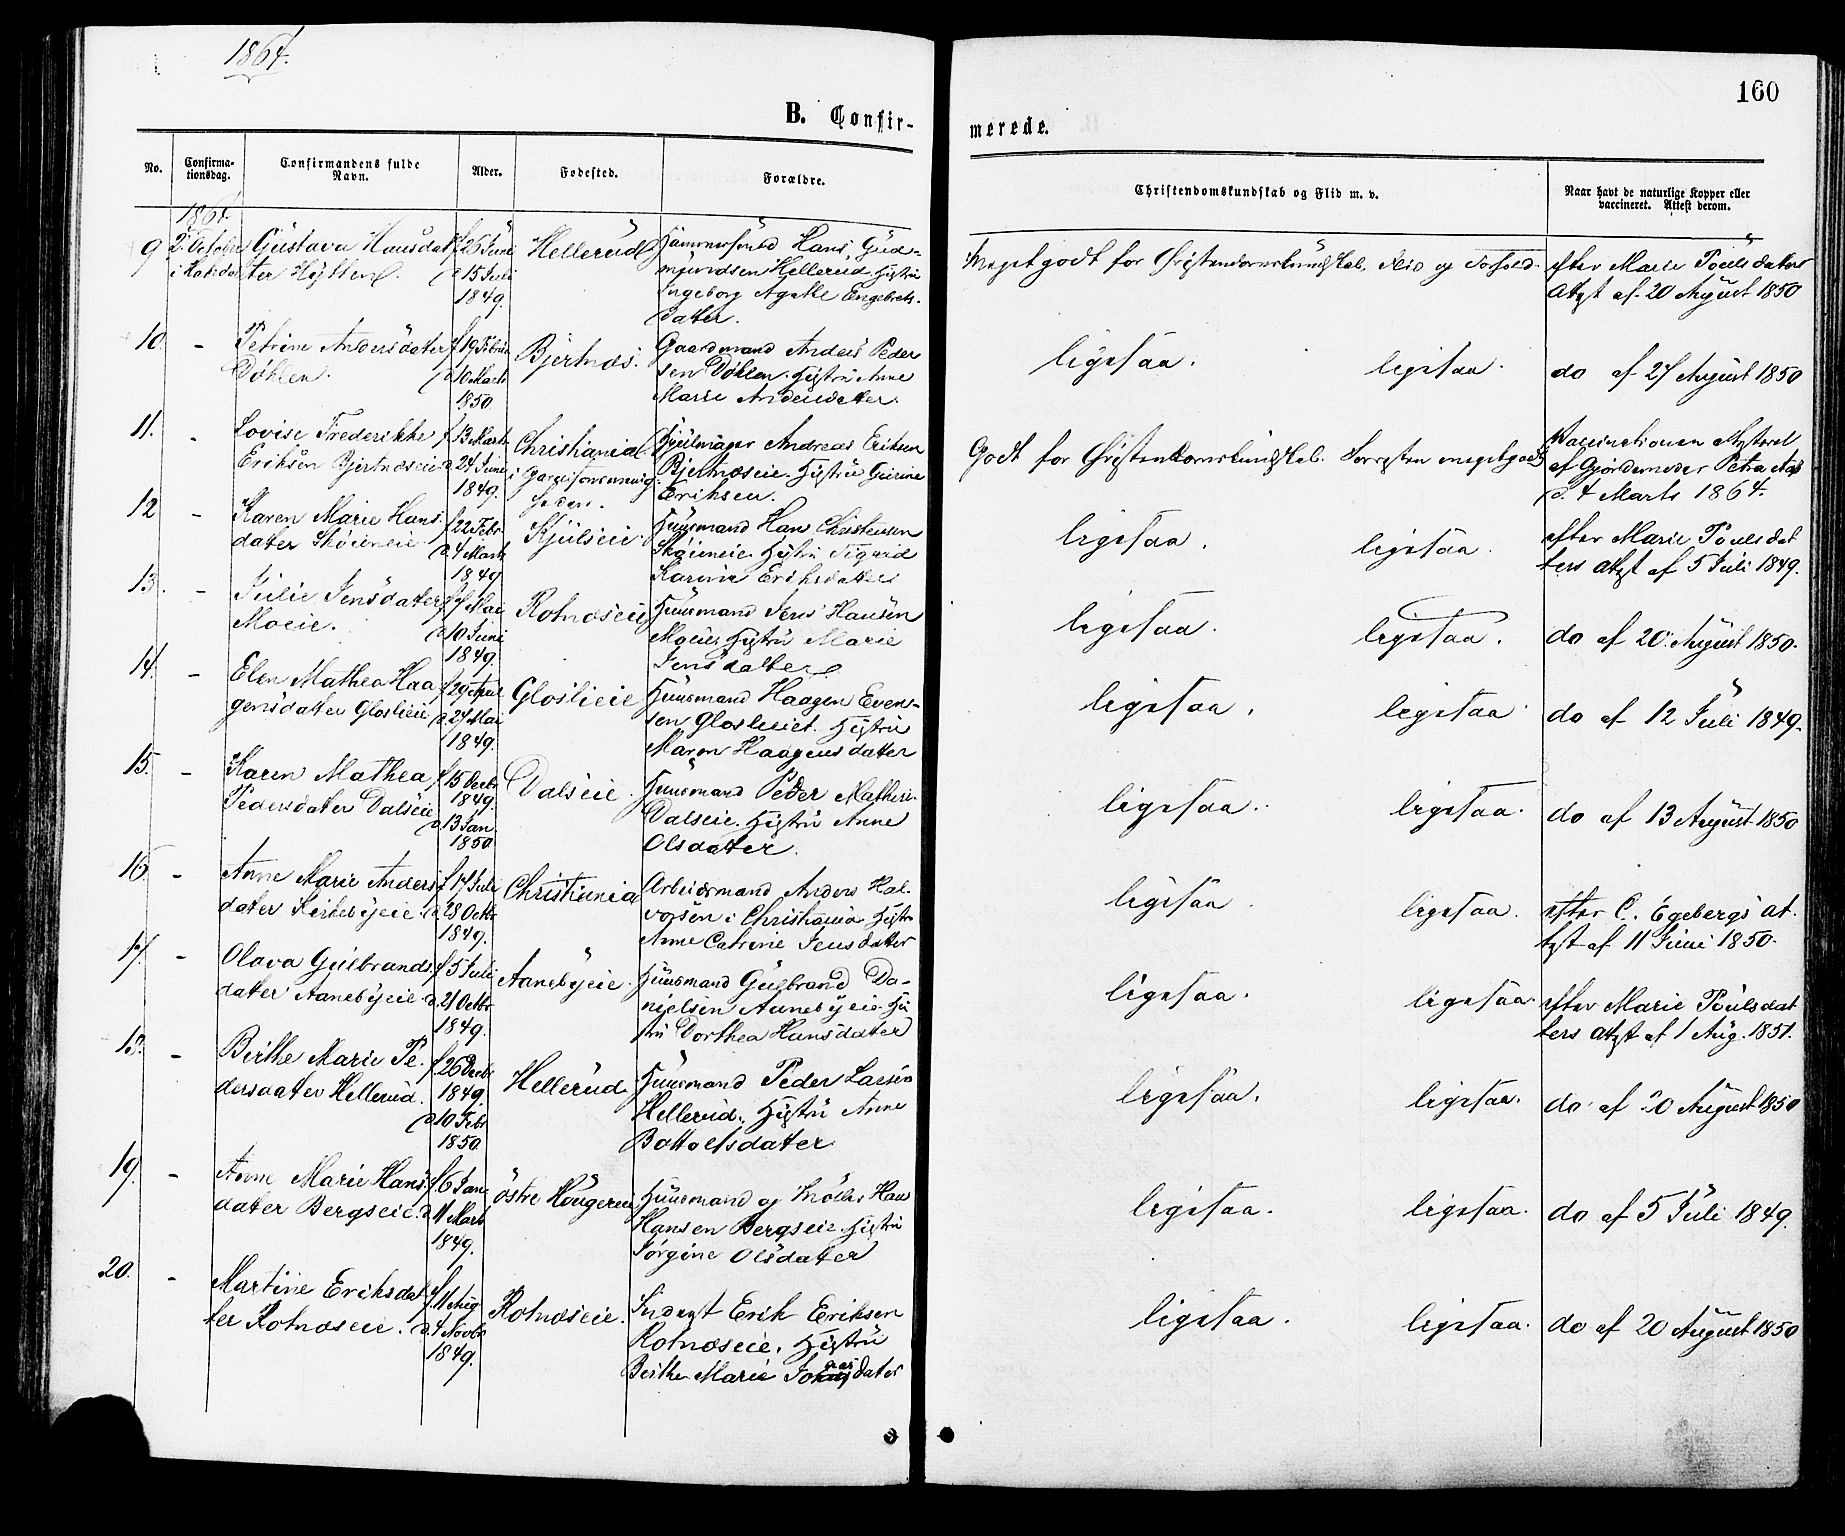 1864.
160
B. Confir-
merede.
No.
Confirma-
tionsdag.
Confirmandens fulde
Navn.
Alder.
Fødested.
Forældre.
Christendomskundskab og Flid m. v.
Naar havt de naturlige Kopper eller
vaccineret. Attest derom.
1864.
9
2. October
Gustava Hansdat
ter Hytten.
f. 26 Juni
d. 15 Juli
1849.
Hellerud
Hans Gud-
mundsen Hellerud, Hustru
Ingeborg Agathe Engebrets-
dater.
Meget godt for Christendomskundskab, Flid og Forhold.
efter Marie Poulsdaters
Attst af 20 August 1850
10.
-
Petrine Andersdater
Døhlen.
f. 19 Februar
d. 10 Marts
1850.
Bjertnæs.
Gaardmand Anders Peder
sen Døhlen. Hustru Anne
Marie Andersdatter.
ligesaa.
ligesaa.
do af 27 August 1850
11.
-
Lovise Frederikke
Eriksen Bjertnæseie
f. 13 Marts
d. 24 Juni
1849.
Christiania
i Garnisonsmenig-
heden.
Hjulmager Andreas Eriksen
Bjertnæseie. Hustru Gurine
Eriksen.
Godt for Christendomskundskab. Forresten meget godt
Vaccinationen Attesteret
af Gjordemoder Petra Aas
d. 4 Marts 1864.
12
-
Karen Marie Hans
dater Skøieneie
f. 22 Febr
d. 4 Marts
1849
Kjulseie
Huusmand Hans Christensen
Skøieneie. Hustru Sigurid
Karine Eriksdatter
ligesaa.
ligesaa.
efter Marie Poulsdat
ters Attst af 5 Juli 1849.
13.
-
Julie Jensdater
Moeie.
f. 7 Mai
d. 10 Juni
1849.
Rotnæseie
Huusmand Jens Hansen
Moeie, Hustru Marie
Jensdatter
ligesaa.
ligesaa.
do af 20 August 1850.
14.
-
Elen Mathea Haa
gensdater Gloslieie
f. 29 April
d. 27 Mai
1849.
Gloslieie
Huusmand Haagen Even-
sen Glosliciet. Hustru
Maren Haagensdatter
ligesaa.
ligesaa
do af 12 Juli 1849.
15.
-
Karen Mathea
Pedersdater Dalseie
f. 15 Decbr
1849.
d. 13 Jan.
1850
Dalseie.
Huusmand Peder Mathis.
Dalseie. Hustru Anne
Olsdater.
ligesaa.
ligesaa.
do af 13 August 1850
16.
-
Anne Marie Anders
dater Kirkebyeie.
f. 17 Juli
d. 28 Octbr
1849.
Christiania
Arbeidsmand Anders Hal-
vorsen i Christiania. Hustru
Anne Catrine Jensdatter
ligesaa
ligesaa.
efter C. Egebergs At.
tst af 11 Juni 1850.
17.
-
Olava Gulbrands
dater Aanebyeie.
f. 5 Juli
d. 21 Octbr
1849.
Aanebyeie.
Huusmand Gulbrand Da-
nielsen Aanebyeie. Hu
stru Dorthea Hansdater
ligesaa.
ligesaa
efter Marie Poulsdat
ters Attst af 1 Aug. 1851.
18.
-
Birthe Marie Pe
dersdater Hellerud.
f. 26 Decbr
1849.
d. 10 Febr
1850.
Hellerud
Huusmand Peder Larsen
Hellerud. Hustru Anne
Bottolfsdater
ligesaa.
ligesaa.
do af 20 August 1850
19.
-
Anne Marie Hans
dater Bergseie.
f. 6 Jan
d. 11 Marts
1849.
Östre Hougeren
Huusmand og Møller Hans
Hansen Bergseie. Hustru
Jørgine Olsdater
ligesaa.
ligesaa.
do af 5 Juli 1849.
20.
-
Martine Eriksdat
ter Rotnæseie.
f. 11 Aug
d. 4 Novbr
1849.
Rotnæseie.
Inderst Erik Eriksen
Rotnæseie. Hustru
Birthe Marie dater
ligesaa.
ligesaa.
do af 20 August 1850